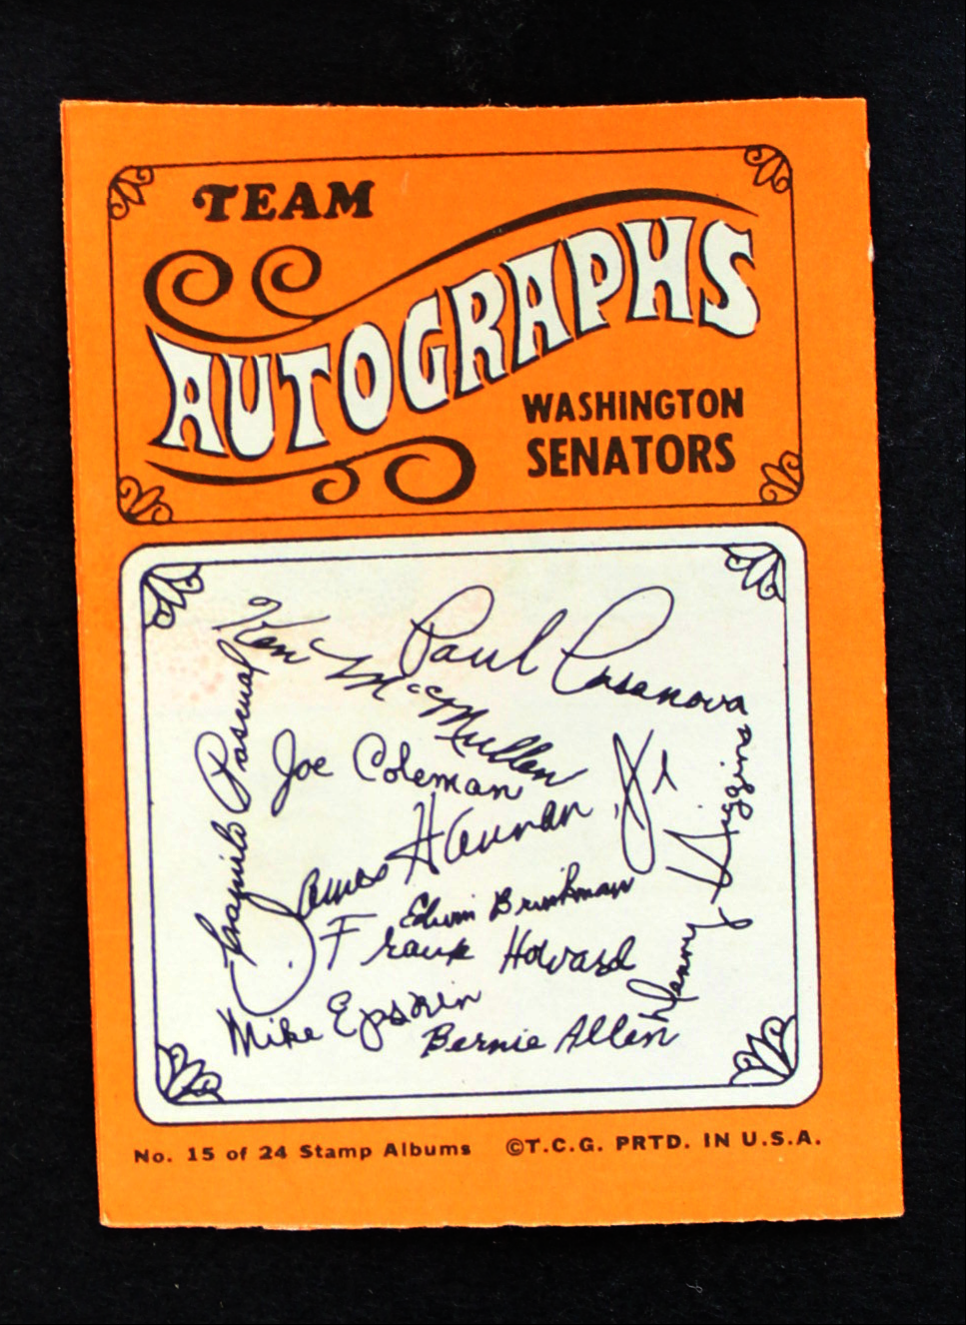 TEAM
AUTOGRAPHS
WASHINGTON
SENATORS
Ken McMullen
Paul Casanova
Camilo Pascual
Joe Coleman
James Hannan, Jr.
Danny Higgins
Edwin Brinkman
Frank Howard
Mike Epstein
Bernie Allen
No. 15 of 24 Stamp Albums ©T.C.G. PRTD. IN U.S.A.